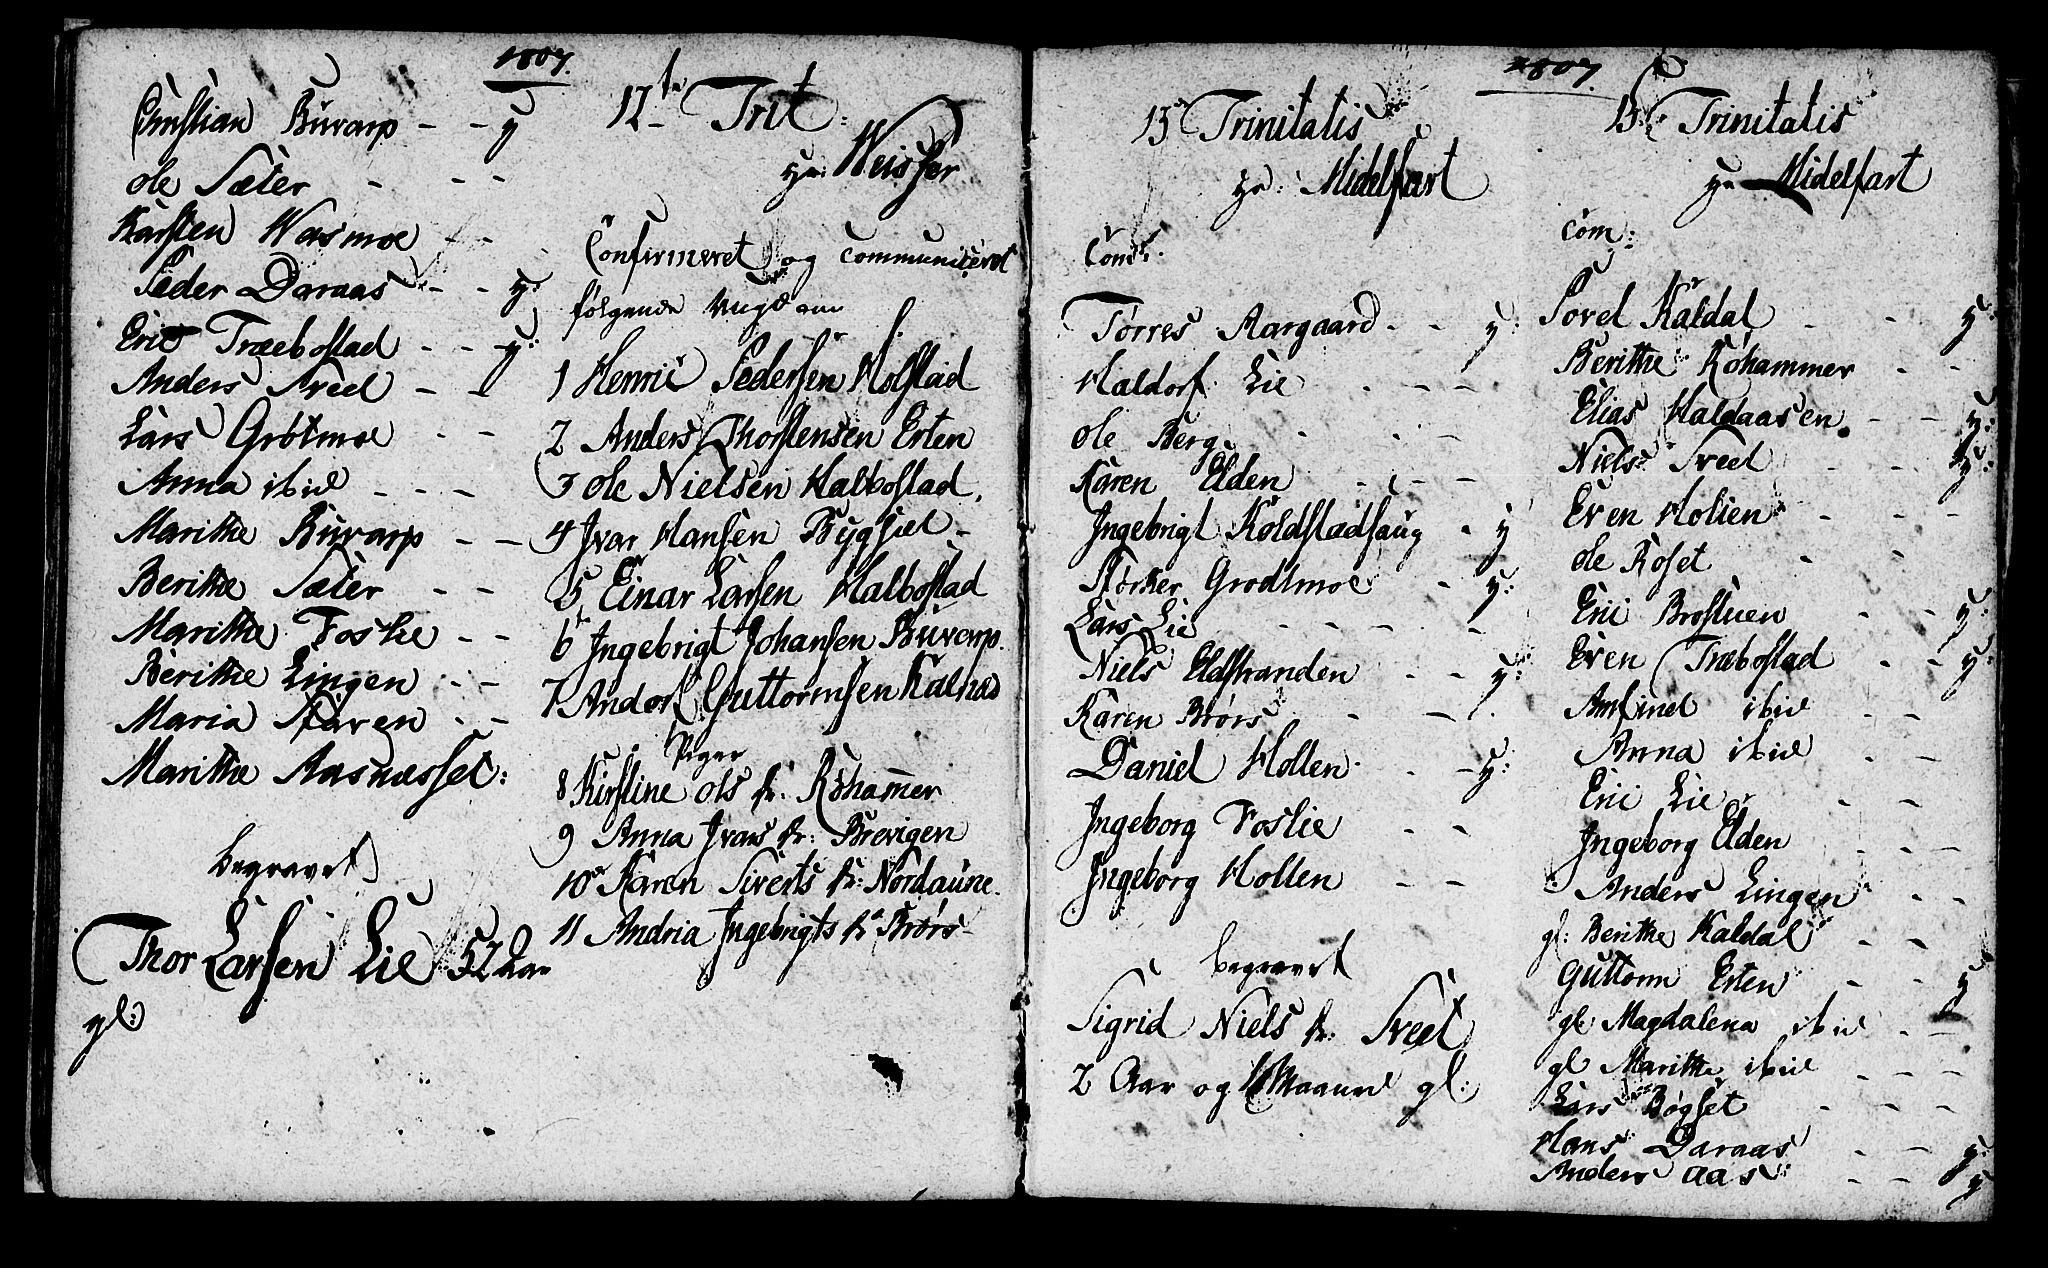 1807.
Christian Burarp - - y
Ole Sæter - - -
Karsten Wasmoe - -
Peder Daraas - - y:
Eric Træebostad - - - y:
Anders Sveel - -
Lars Grøtmoe - -
Anna ibid - - -
Marithe Burarp - -
Berithe Sæter - -
Marithe Foslie - -
Berithe Lingen - -
Maria Staren - -
Marithe Aasnæsset:
begravet
Thor Larsen Lie 52 Aar
gl:
12te Trit:
Hr: Weisser
Confirmeret og communiceret
følgende Ungdom
1 Henric Pedersen Holstad
2 Anders Thorstensen Erten
3 Ole Nielsen Halbostad,
4 Ivar Hansen Bygsæl -
5 Einar Larsen Halbostad
6 Ingebrigt Johansen Burarp.
7 Andors Guttormsen Kalnæs
Piger
8 Kirstine Ols dr. Röhammer
9 Anna Ivars dr: Brevigen
10 Karen Siverts dr: Nordaune.
11 Andria Ingebrigts dr Brørs
1807.
13 Trinitatis
Hr: Midelfart
Com:
Tørres Aargaard - - y:
Haldorf Lie - - -
Ole Berg - - -
Karen Elden - - -
Ingebrigt Koldstadhaug - y
Størker Grodtmoe - y:
Lars Lie - - -
Niels Eldstranden - - y:
Karen Brørs - - -
Daniel Hollen - - y:
Ingeborg Foslie - -
Ingeborg Hollen - -
begravet
Sigrid Niels dr. Sveet
2 Aar og Maaned gl:
13 Trinitatis
Hr Midelfart
Com:
Povel Kaldal - - y:
Berithe Röhammer - -
Elias Haldaasen - - y:
Niels Sveel - - y:
Even Holien - - -
Ole Roset - -
Eric Brostuen - - y:
Even Træbostad - - y:
Amfind ibid - -
Anna ibid - -
Eric Lie - -
Ingeborg Elden - - -
Anders Lingen - -
gl: Berithe Kaldal - -
Guttorm Erten - - y
gl Magdalena ibid - -
gl Marithe ibid - - -
Lars Bøgset - - -
Hans Daraas - - y:
Anders Aas - - y